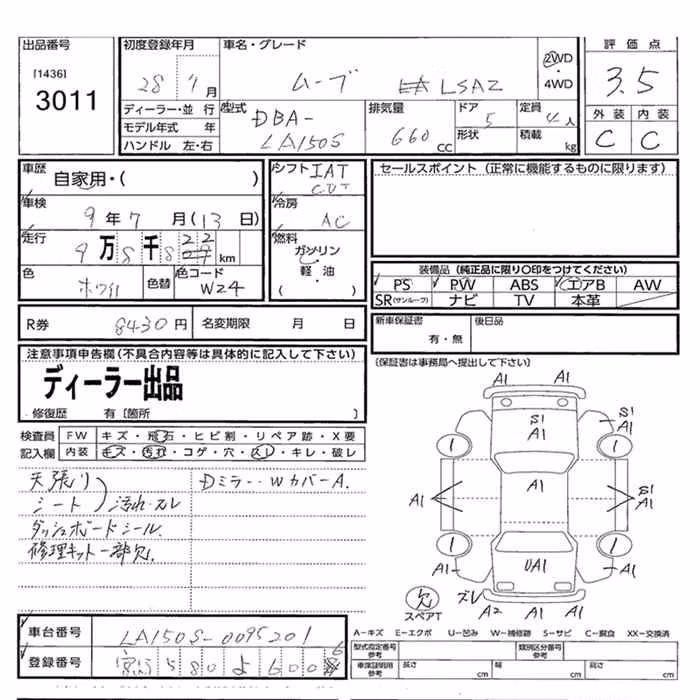 出品番号
[1436]
3011
初度登録年月
28 7月
車名・グレード
ムーブ LSAZ
2WD
・
4WD
評価点
3.5
外装 内装
C C
ディーラー・並行
モデル年式 年
ハンドル 左・右
型式
DBA-
LA150S
排気量
660
CC
ドア
5
形状
定員
4人
積載
kg
車歴
自家用・( )
車検
9年7月(13日)
走行
9万8千8 22 km
色
ホワイト
色替
色コード
W24
シフト IAT
CVT
冷房
AC
燃料
ガソリン
・
軽・油
( )
セールスポイント (正常に機能するものに限ります)
装備品 (純正品に限り〇印をつけてください)
PS PW ABS エアB AW
SR(サンルーフ) ナビ TV 本革
R券 8430円 名変期限 月 日
新車保証書
有・無
後日品
注意事項申告欄(不具合内容等は具体的に記入して下さい)
ディーラー出品
修復歴 有〔箇所 〕
〔保証書は事務局へ提出して下さい〕
検査員 FW キズ・飛石・ヒビ割・リペア跡・X要
記入欄 内装 キズ・汚れ・コゲ・穴・スレ・キレ・破レ
天張り
シート )汚れ・スレ
ダッシュボードシール.
修理キット一部欠.
Dミラー・WカバーA.
A1 A1
S1
A1
S1
A1
1 1
A1
A1
A1
S1
A1
1 1
UA1
A1 A1
欠
スペアT
ズレ
A2 A1 A1
A-キズ E-エクボ U-凹み W-補修跡 S-サビ C-腐食 XX-交換済
車台番号 LA150S-0095201
登録番号 580 よ 600
型式指定番号
参考
類別区分番号
参考
車庫証明用
参考
長さ cm
幅 cm
高さ cm